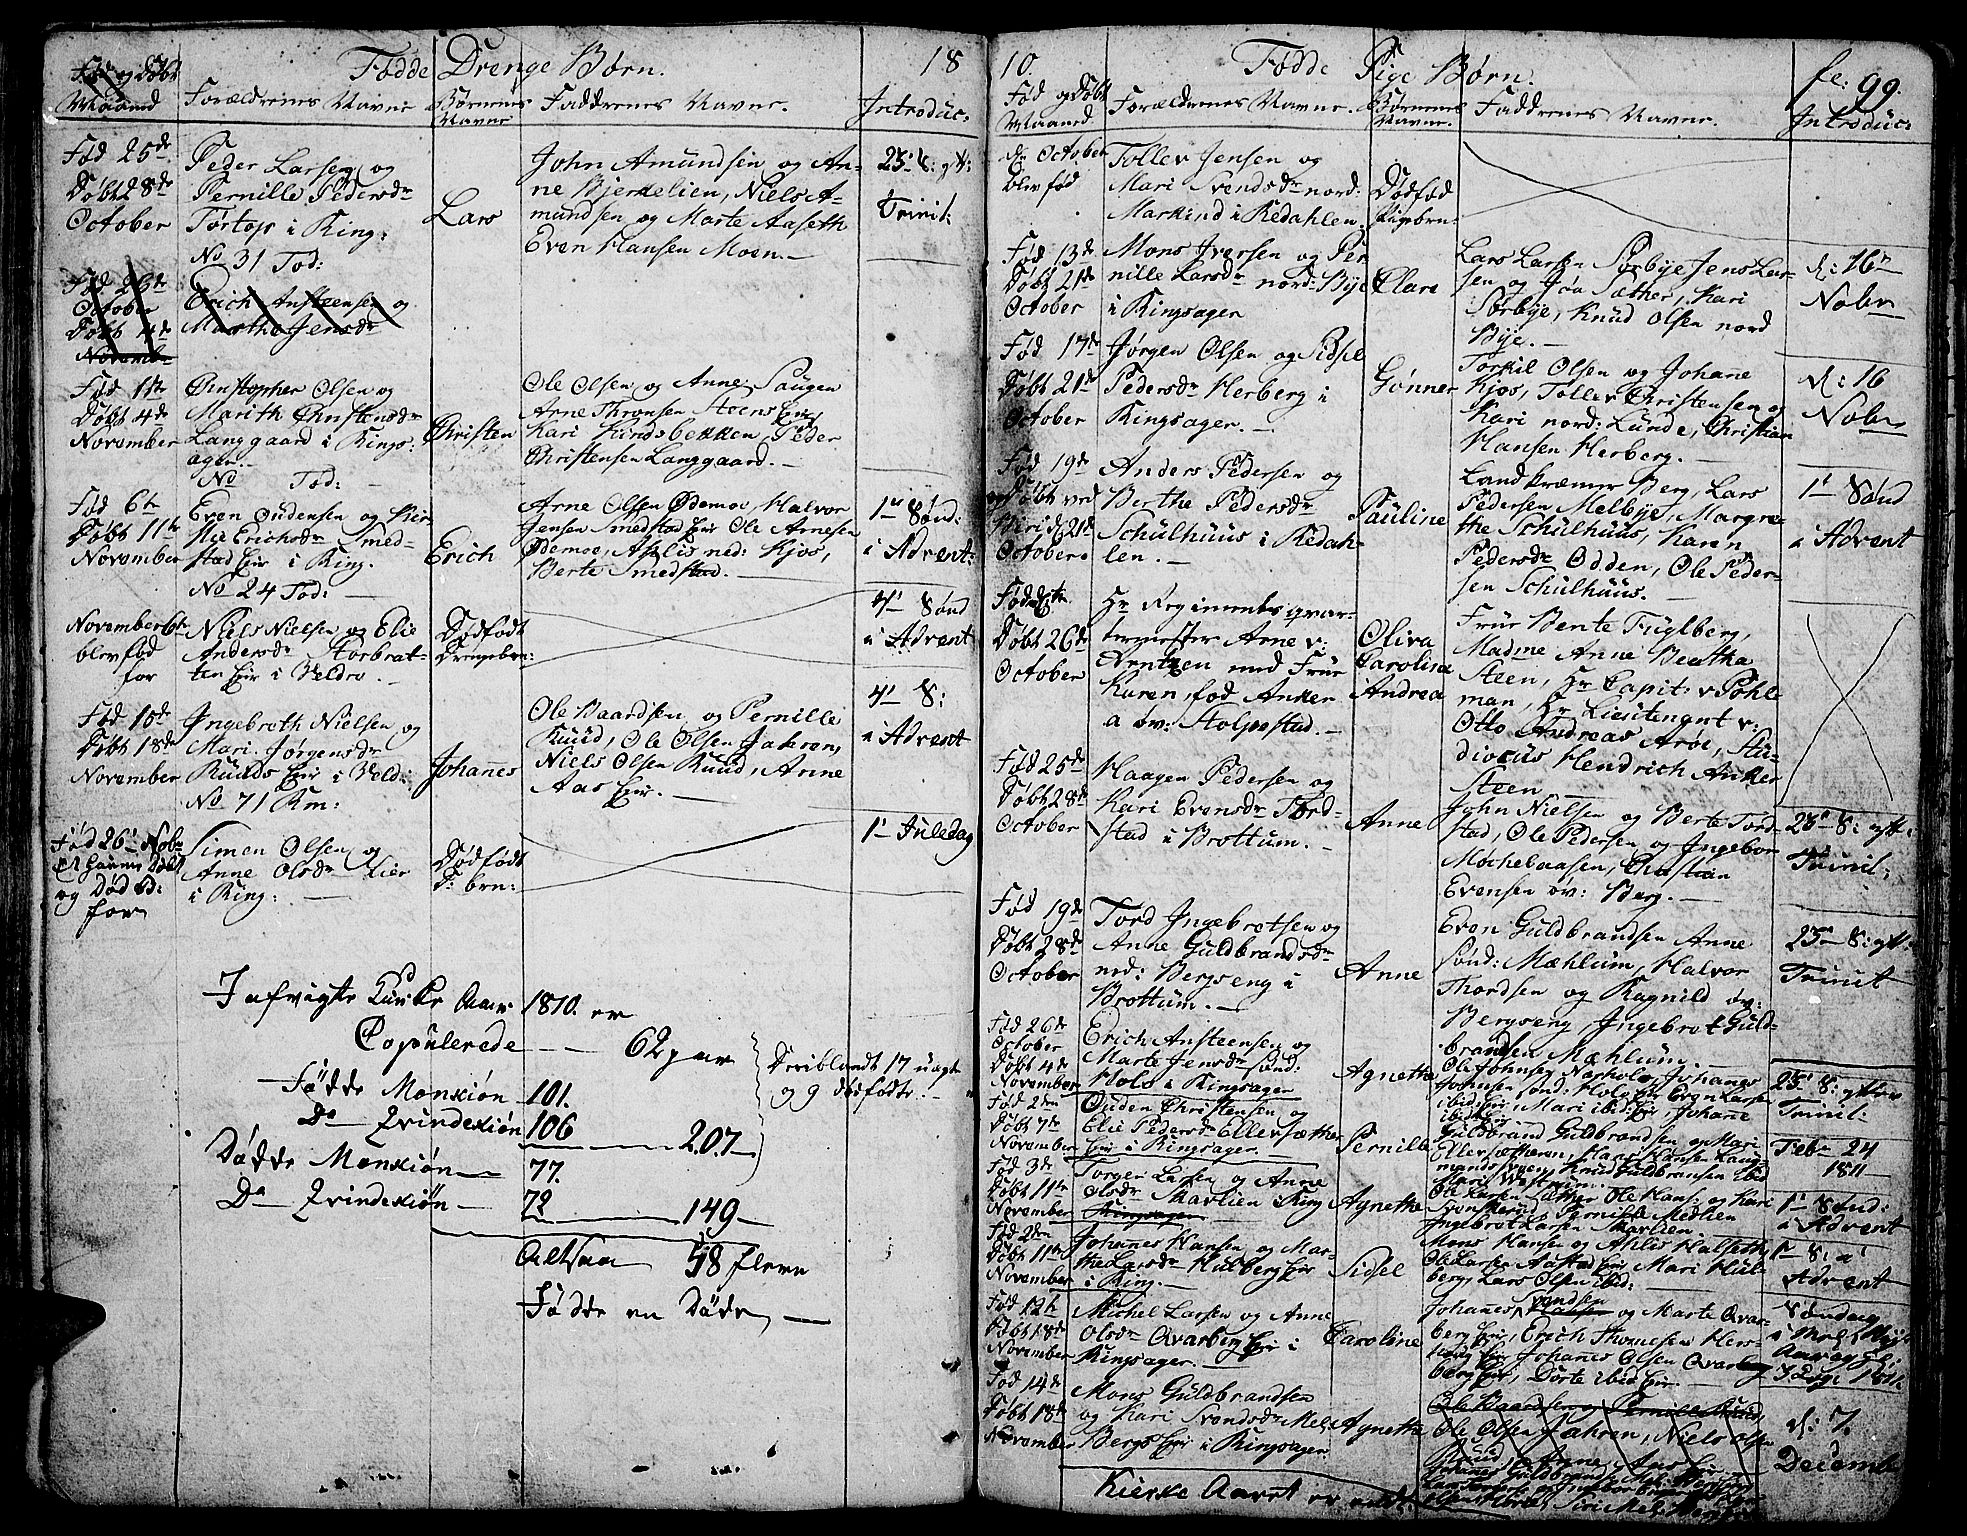 Fødde Drenge Børn. 18
Fød og Døbt
Maaned
Forældrenes Navne
Børnenes
Navne
Faddrenes Navne.
Introduc:
Fød 25de
Døbt 28de
October
Peder Larsen og
Pernille Pedersdr
Tørtop i Ring:
No 31 Tod:
Lars
John Amundsen og An-
ne Bjerkelien, Niels A-
mundsen og Marte Aaseth
Even Hansen Moen.
23' S: e: 
Trinit:
Fød 26de
October
Døbt 4de
Novembr
Erich Ansteensen og
Martha Jensdr
Fød 1ste
Døbt 4de
November
Christopher Olsen og
Marith Christensdr
Langgaard i Rings-
ager.
No Tod:
Christen
Ole Olsen og Anne Saugen
Arne Thronsen Steens Eier,
Kari Kindsbekken, Peder
Christensen Langgaard.
Fød 6te
Døbt 11te
November
Even Oudensen og Kir-
stie Erichsdr Smed-
stad Eier i Ring.
No 24 Tod:
Erich
Arne Olsen Ødemoe, Halvor
Jensen Smedstad Eier Ole Arnesen
Ødemoe, Ahlis ned: Kjos,
Berte Smedstad.
1ste Sønd:
i Advent:
November 6te
blev fød
for
Niels Nielsen og Elie
Andersdr Storbrat-
ten Eier i Veldre.
Dødfødt
Drengebrn:
4' Sønd
i Advent
Fød 10de
Døbt 18de
November
Ingebreth Nielsen og
Mari Jørgensdr
Ruuds Eier i Veld:
No 71 Rm:
Johanes
Ole Baardsen og Pernille
Ruud, Ole Olsen Jahren,
Niels Olsen Ruud, Anne
Aas Eier.
4' S:
i Advent
Fød 26' Nobr
og Død
for
Simen Olsen og
Anne Olsdr Lier
i Ring:
Dødfødt
D: brn:
1' Juledag
I afvigte Kirke Aar 1810. er
Copulerede 62 par
Fødde Mankiøn 101.
Do Qvindekiøn 106 207
Deriblandt 17 uægte
og 9 dødfødte.
Dødde Mankiøn 77.
Do Qvindekiøn 72 149
Altsaa 58 flere
Fødde en Døde
10. Fødde Pige Børn. fe: 99.
Fød og Døbt
Maaned.
Forældrenes Navne.
Børnenes
Navne.
Faddrenes Navne.
Introduc:
October
blev fød
Tollev Jensen og
Mari Svendsdr nord:
Markind i Redahlen
Dødfød
Pigebrn:
Fød 13de
Døbt 21de
October
Mons Iversen og Per
nille Larsdr nord: Bye
i Ringsager
Clare
Lars Larsen Sørbye Jens Lar-
sen og Joa Sæther, Kari
Sørbye, Knud Olsen nord
Bye.
d: 16de
Nobr
Fød 17de
Døbt 21de
October
Jørgen Olsen og Sidsel
Pedersdr Herberg i
Ringsager.
Gønner
Torkil Olsen og Johane
Kjos, Tollev Christensen og
Kari nord: Lunde, Christian
Hansen Herberg.
d: 16
Nobr
Fød 19de
Døbt ved
October
Anders Pedersen og
Berthe Pedersdr
Schulhuus i Redah-
len.
Pauline
Landkræmer Berg, Lars
Pedersen Melbye, Margre-
the Schulhuus, Karen
Pedersdr Odden, Ole Peder-
sen Schulhuus.
1' Sønd
i Advent
Fød
Døbt 26de
October
Hr Regimentsqvar-
termester Arne v:
Arntzen med Frue
Karen, fød Anker
a øv: Stolpestad.
Oliva
Carolina
Andrea
Frue Bente Fuglberg,
Madme Anne Beatha
Steen, Hr Capit: v Pohl-
man, Hr Lieutengnt v:
Otto Andreas Arøe, Stu-
diosus Hendrich Anker
Steen
Fød 25de
Døbt 28de
October
Haagen Pedersen og
Kari Evensdr Tord-
stad i Brøttum.
Anne
John Nielsen og Berte Tord-
stad, Ole Pedersen og Ingebor
Mochelaasen, Christian
Evensen øv: Berg.
23de S:
Trinit:
Fød 19de
Døbt 28de
October
Tord Ingebretsen og
Anne Guldbrandsdr
ned: Bergseng i
Brøttum.
Anne
Even Guldbrandsen Anne
Sønd: Mæhlum, Halvor
Thordsen og Ragnild øv:
Bergseng, Ingebrot Guld-
brandsen Mæhlum.
23de S:
Trinit
Fød 26de
October
Døbt 4de
November
Erich Ansteensen og
Marte Jensdr Sønd:
Hols i Ringsager
Agnethe
Ole Johnsen Norhols, Johanes
Johnsen Sønd: Hols Eier Even Larsen
ibid Eier, Mari ibid: Eier, Johane
ibid Eier
23' S:
Trinit:
Fød 2den
Døbt 7de
November
Ouden Christensen og
Elie Pedersdr Ellevsæther
Eier i Ringsager.
Pernille
Guldbrand Guldbrandsen og Mari
Ellevsætheren, Hans Hansen
Knud Guldbrandsen ibid
Febr 24
1811
Fød 3de
Døbt 11te
November
Torger Larsen og Anne
Olsdr Skarlien Ring
Ringsager
Agnethe
Ole Larsen Sæther Ole Hans: og Kari
Pernille Medlien
Ingebrot Larsen Skarlien
1' Sønd:
i Advent
Fød 2den
Døbt 11te
November
Johanes Hansen og Mar-
the Larsdr Hulberg Eier
i Ring.
Sidsel
Mons Hansen og Ahlis Halseth,
Ole Larsen Aastad Eier Mari Hul-
berg, Lars Olsen ibid:
1' S: i
Advent
Fød 12te
Døbt 18de
November
Michel Larsen og Anne
Olsdr Qvarberg Eier i
Ringsager.
Caroline
Johanes Svendsen og Marte Qvar-
berg Eier, Erich Thomesen Hers-
houg Eier, Johanes Olsen Qvarberg
berg Eier, Dorte ibid Eier.
Søndag
1811
Fød 14de
Døbt 18de
November
Mons Guldbrandsen
og Kari Svendsdr Mel:
Bergs Eier i Ringsager.
Agnethe
Ole Baardsen og Pernille Ruud,
Ole Olsen Jahren, Niels Olsen
Ruud, Anne Aas Eier
d: 7.
December
Kierke Aaret er endt